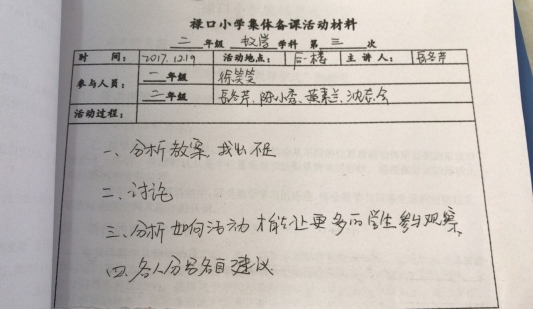 禄口小学集体备课活动材料
二 年级 数学 学科 第 三 次
时 间： 2017.12.19 活动地点： 后一楼 主 讲 人： 吕冬芹
参与人员： 一 年级 徐笑笑
二 年级 吕冬芹、陈小香、
活动过程：
一、分析教案，找出不足
二、讨论
三、分析如何活动才能让更多的学生参与观察，
四、各人分另各自建议